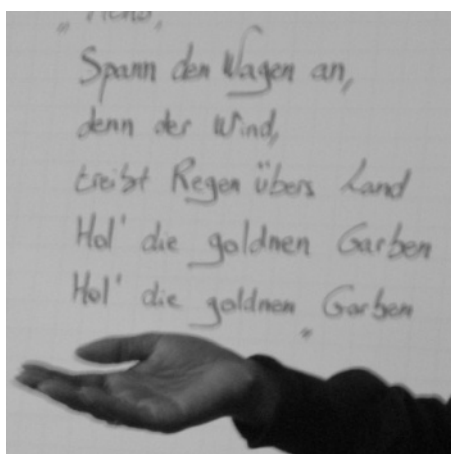 Spann den Wagen an,
denn der Wind,
treibt Regen übers Land
Hol' die goldnen Garben
Hol' die goldnen Garben"